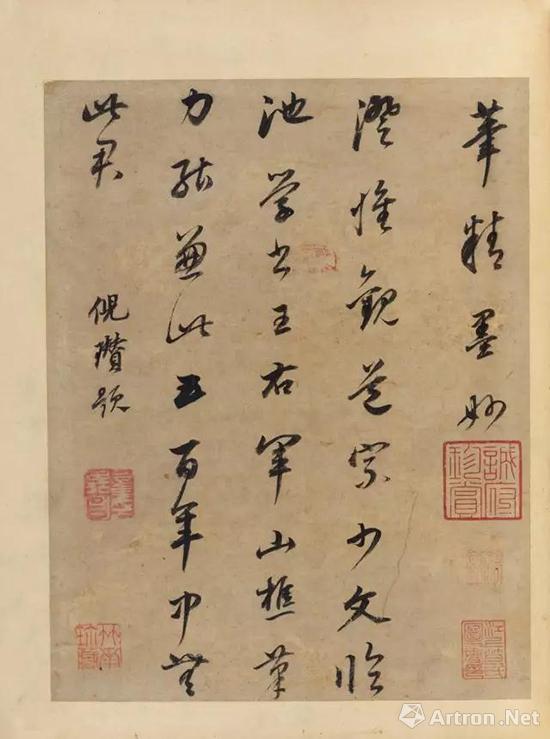 筆精墨妙
澄懷觀道宗少文臨
池學書王右軍山樵筆
力能兼此五百年中無
此君
倪瓚題
Artron.Net